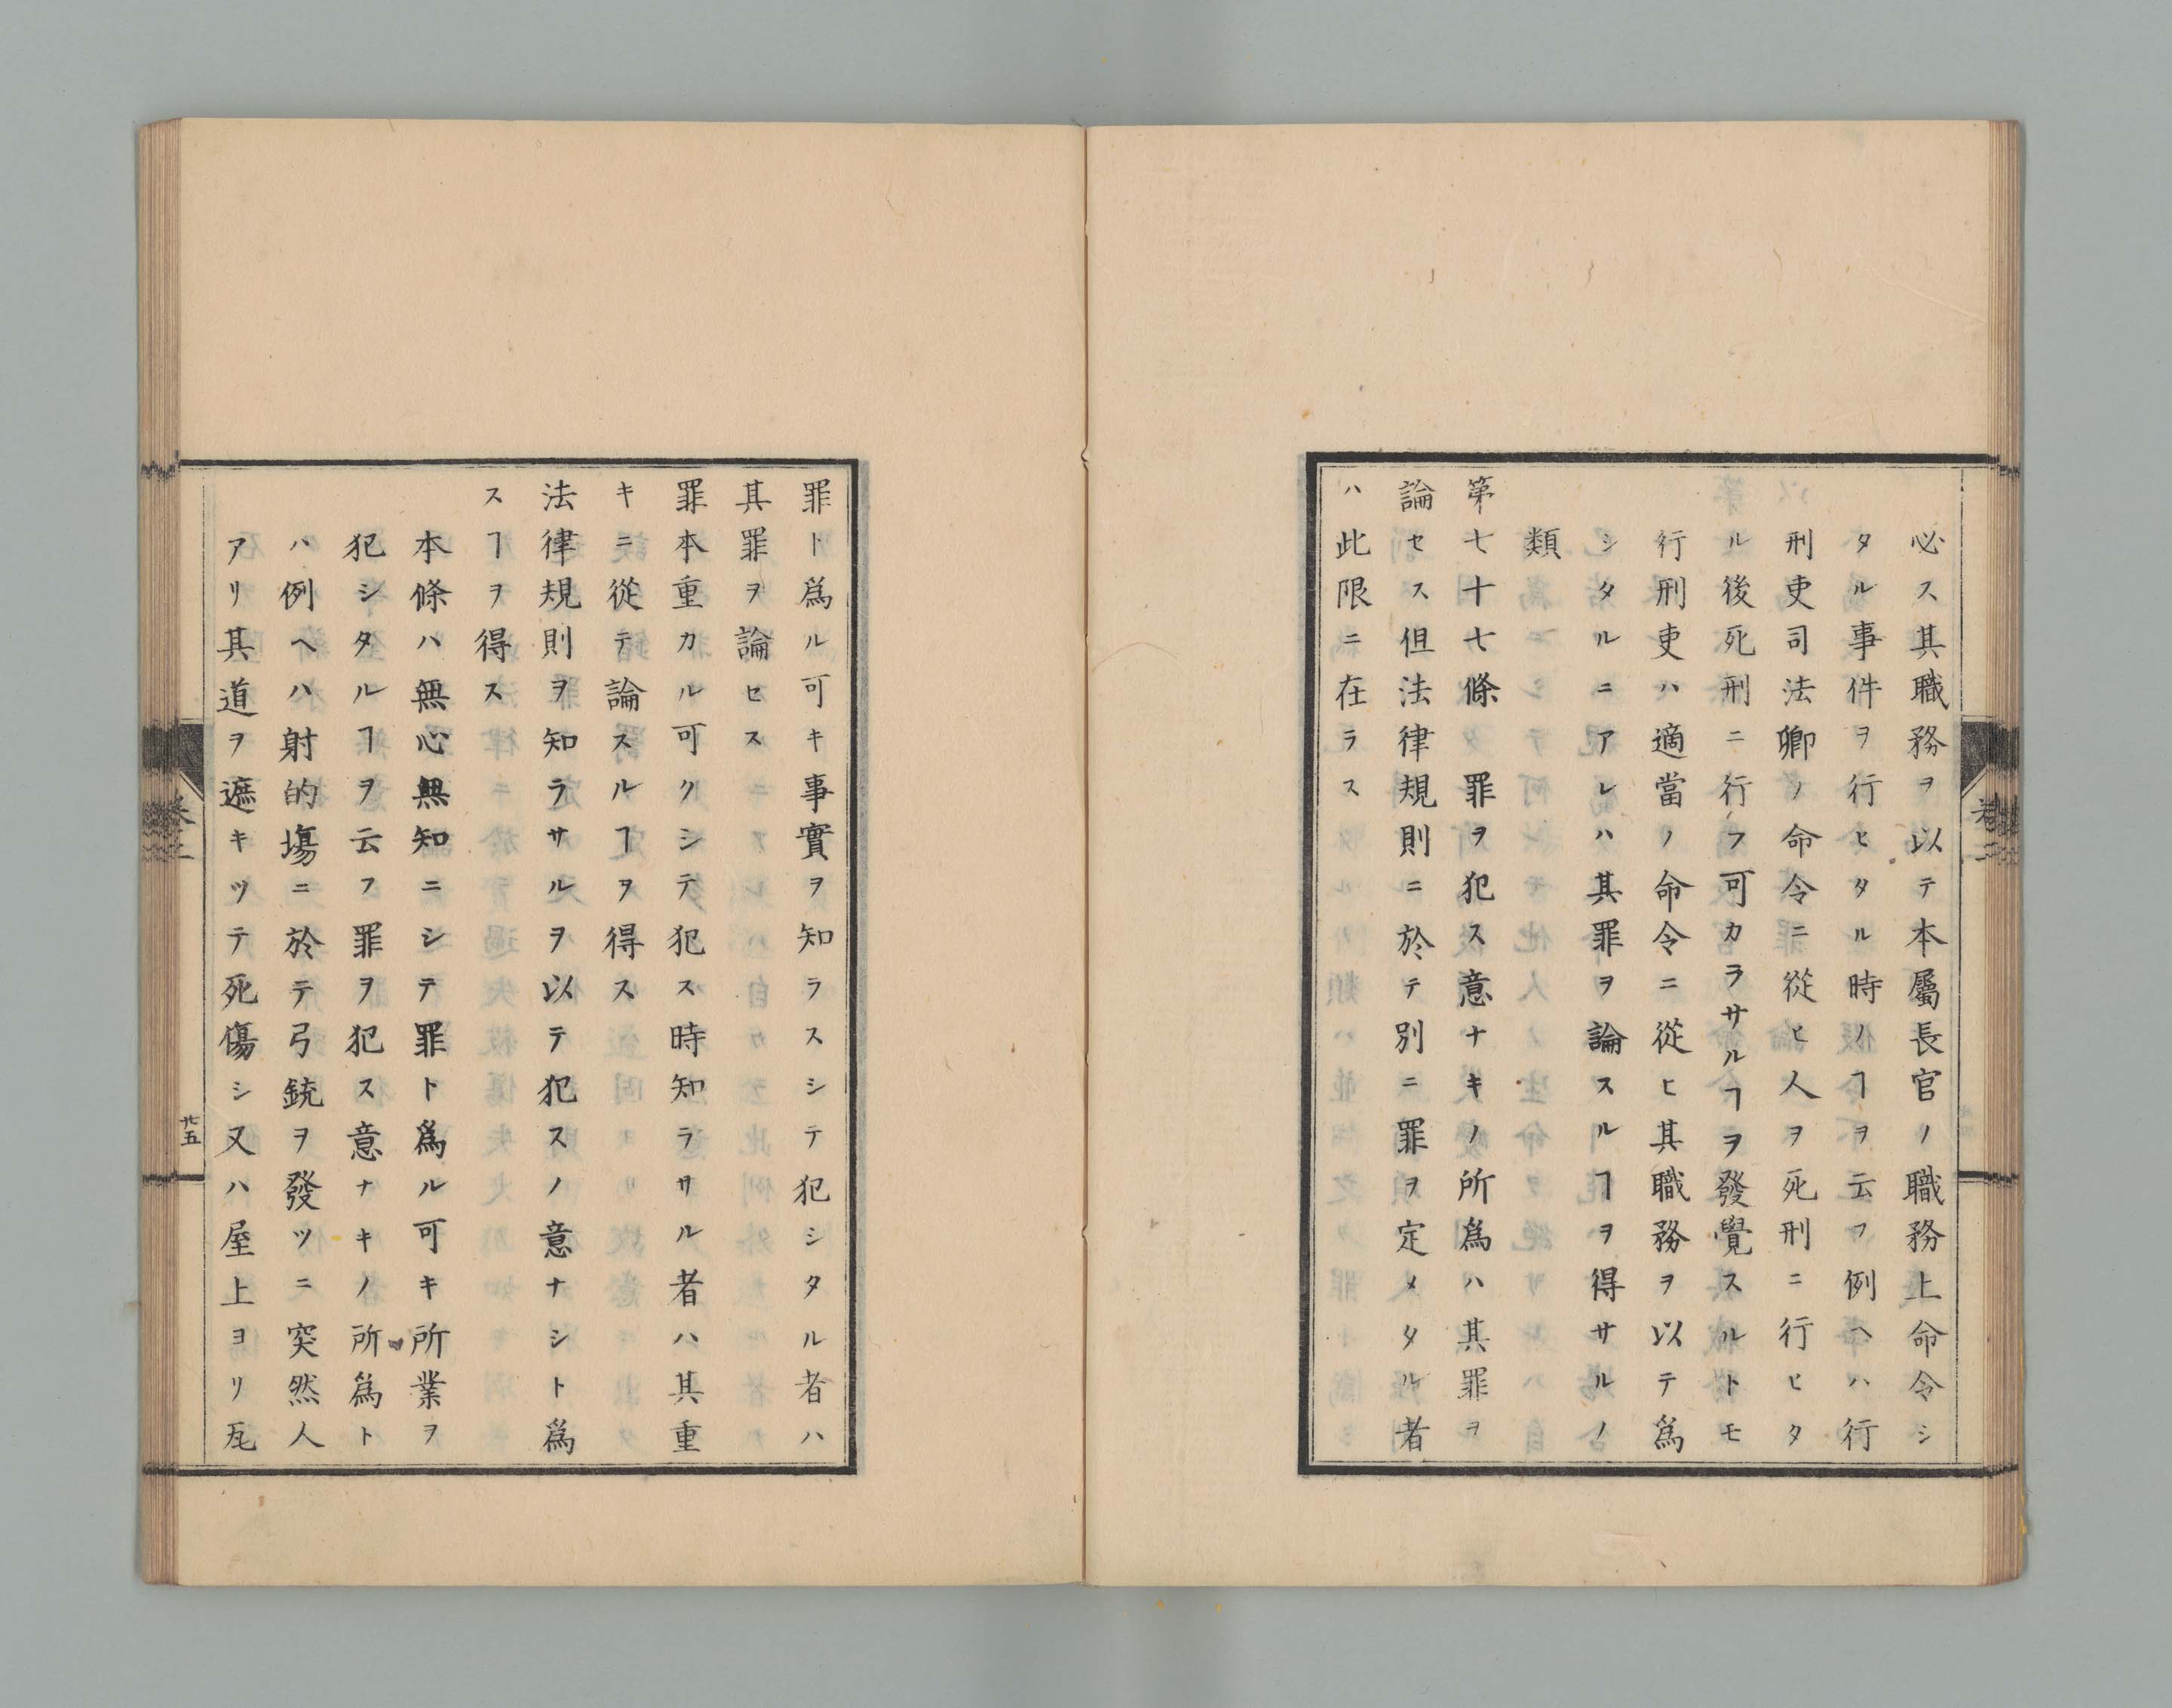 必ス其職務ヲ以テ本屬長官ノ職務上命令シ
タル事件ヲ行ヒタル時ノヿヲ云フ例ヘハ行
刑吏司法卿ノ命令ニ從ヒ人ヲ死刑ニ行ヒタ
ル後死刑ニ行フ可カラサルヿヲ發覺スルトモ
行刑吏ハ適當ノ命令ニ從ヒ其職務ヲ以テ爲
シタルニアレハ其罪ヲ論スルヿヲ得サルノ
類
第七十七條罪ヲ犯ス意ナキノ所爲ハ其罪ヲ
論セス但法律規則ニ於テ別ニ罪ヲ定メタル者
ハ此限ニ在ラス
卷二
罪ト爲ル可キ事實ヲ知ラスシテ犯シタル者ハ
其罪ヲ論セス
罪本重カル可クシテ犯ス時知ラサル者ハ其重
キニ從テ論スルヿヲ得ス
法律規則ヲ知ラサルヲ以テ犯スノ意ナシト爲
スヿヲ得ス
本條ハ無心無知ニシテ罪ト爲ル可キ所業ヲ
犯シタルヿヲ云フ罪ヲ犯ス意ナキノ所爲ト
ハ例ヘハ射的塲ニ於テ弓銃ヲ發ツニ突然人
アリ其道ヲ遮キツテ死傷シ又ハ屋上ヨリ瓦
卷二
廿五